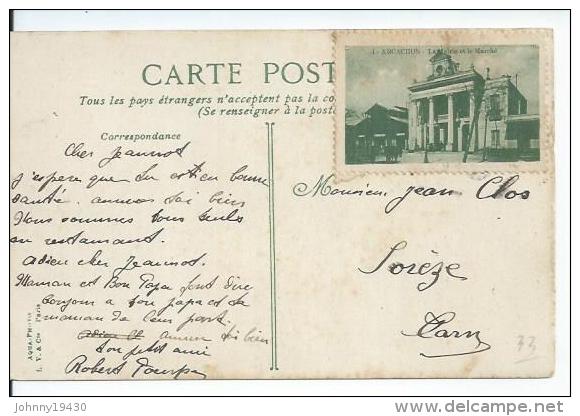 CARTE POST
Tous les pays étrangers n'acceptent pas la co
(Se renseigner à la posta
1 - ARCACHON - La Mairie et le Marché
Correspondance
Cher Jeannot
j'espere que tu es en bonne
santé. amuses toi bien
Nous sommes tous seuls
au restaurant.
adieu cher Jeannot.
Maman et Bon Papa font dire
bonjour a ton papa et ta
maman de leur part.
amuse toi bien
ton petit ami
Robert
Monsieur Jean Clos
Sorèze
Tarn
33
AQUA-PHOTO
L. V. & Cie Paris
Johnny19430
www.delcampe.net